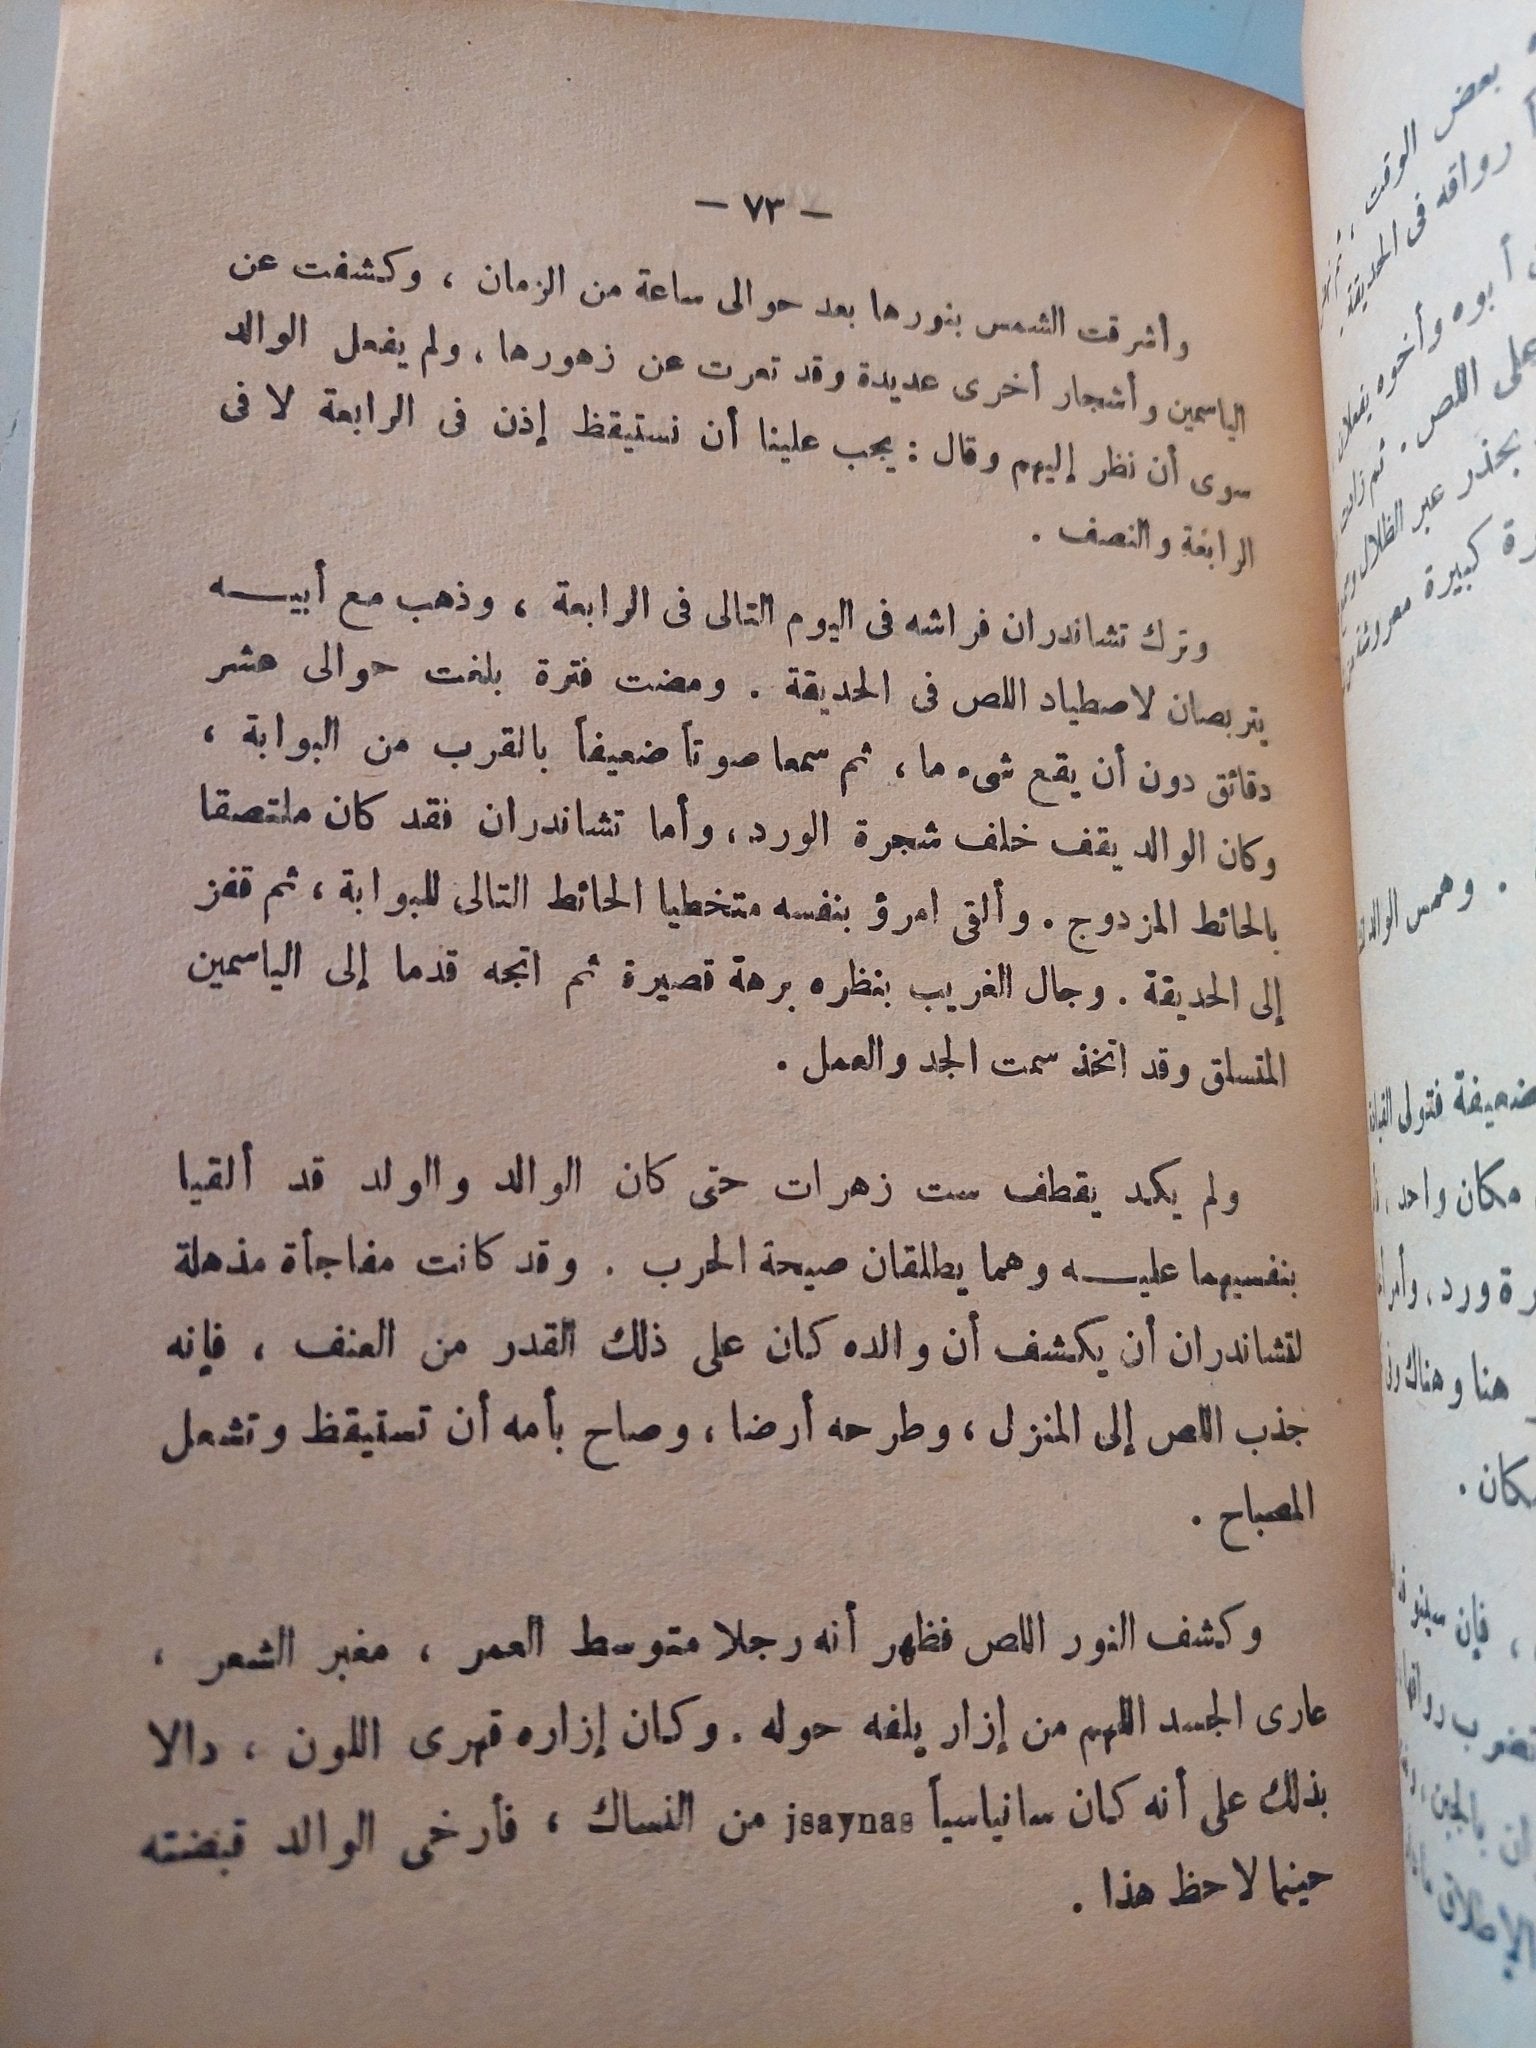 — ٧٣ —
وأشرقت الشمس بنورها بعد حوالى ساعة من الزمان ، وكشفت عن
الياسمين وأشجار أخرى عديدة وقد تعرت عن زهورها ، ولم يفعل الوالد
سوى أن نظر إليهم وقال : يجب علينا أن نستيقظ إذن فى الرابعة لا فى
الرابعة والنصف .
وترك تشاندران فراشه فى اليوم التالى فى الرابعة ، وذهب مع أبيـــه
يتربصان لاصطياد اللص فى الحديقة . ومضت فترة بلغت حوالى عشر
دقائق دون أن يقع شىء ما ، ثم سمعا صوتاً ضعيفاً بالقرب من البوابة ،
وكان الوالد يقف خلف شجرة الورد ، وأما تشاندران فقد كان ملتصقا
بالحائط المزدوج . وألقى امرؤ بنفسه متخطيا الحائط التالى للبوابة ، ثم قفز
إلى الحديقة . وجال الغريب بنظره برهة قصيرة ثم اتجه قدما إلى الياسمين
المتسلق وقد اتخذ سمت الجد والعمل .
ولم يكد يقطف ست زهرات حتى كان الوالد والولد قد ألقيا
بنفسيهما عليـــه وهما يطلقان صيحة الحرب . وقد كانت مفاجأة مذهلة
لتشاندران أن يكشف أن والده كان على ذلك القدر من العنف ، فإنه
جذب اللص إلى المنزل ، وطرحه أرضا ، وصاح بأمه أن تستيقظ وتشعل
المصباح .
وكشف النور اللص فظهر أنه رجلا متوسط العمر ، مغبر الشعر ،
عارى الجسد اللهم من إزار يلفه حوله . وكان إزاره قهرى اللون ، دالا
بذلك على أنه كان سانياسياً jsaynas من النساك ، فأرخى الوالد قبضته
حينما لاحظ هذا .
بعض الوقت ،
رواقه فى الحديقة .
أبوه وأخوه يفعلان
على اللص . ثم
بحذر عبر الظلال
كبيرة
. وهمس الوالد
ضعيفة فتولى
مكان واحد ،
ورد ، وأمر
هنا وهناك
مكان .
، فإن
الإطلاق